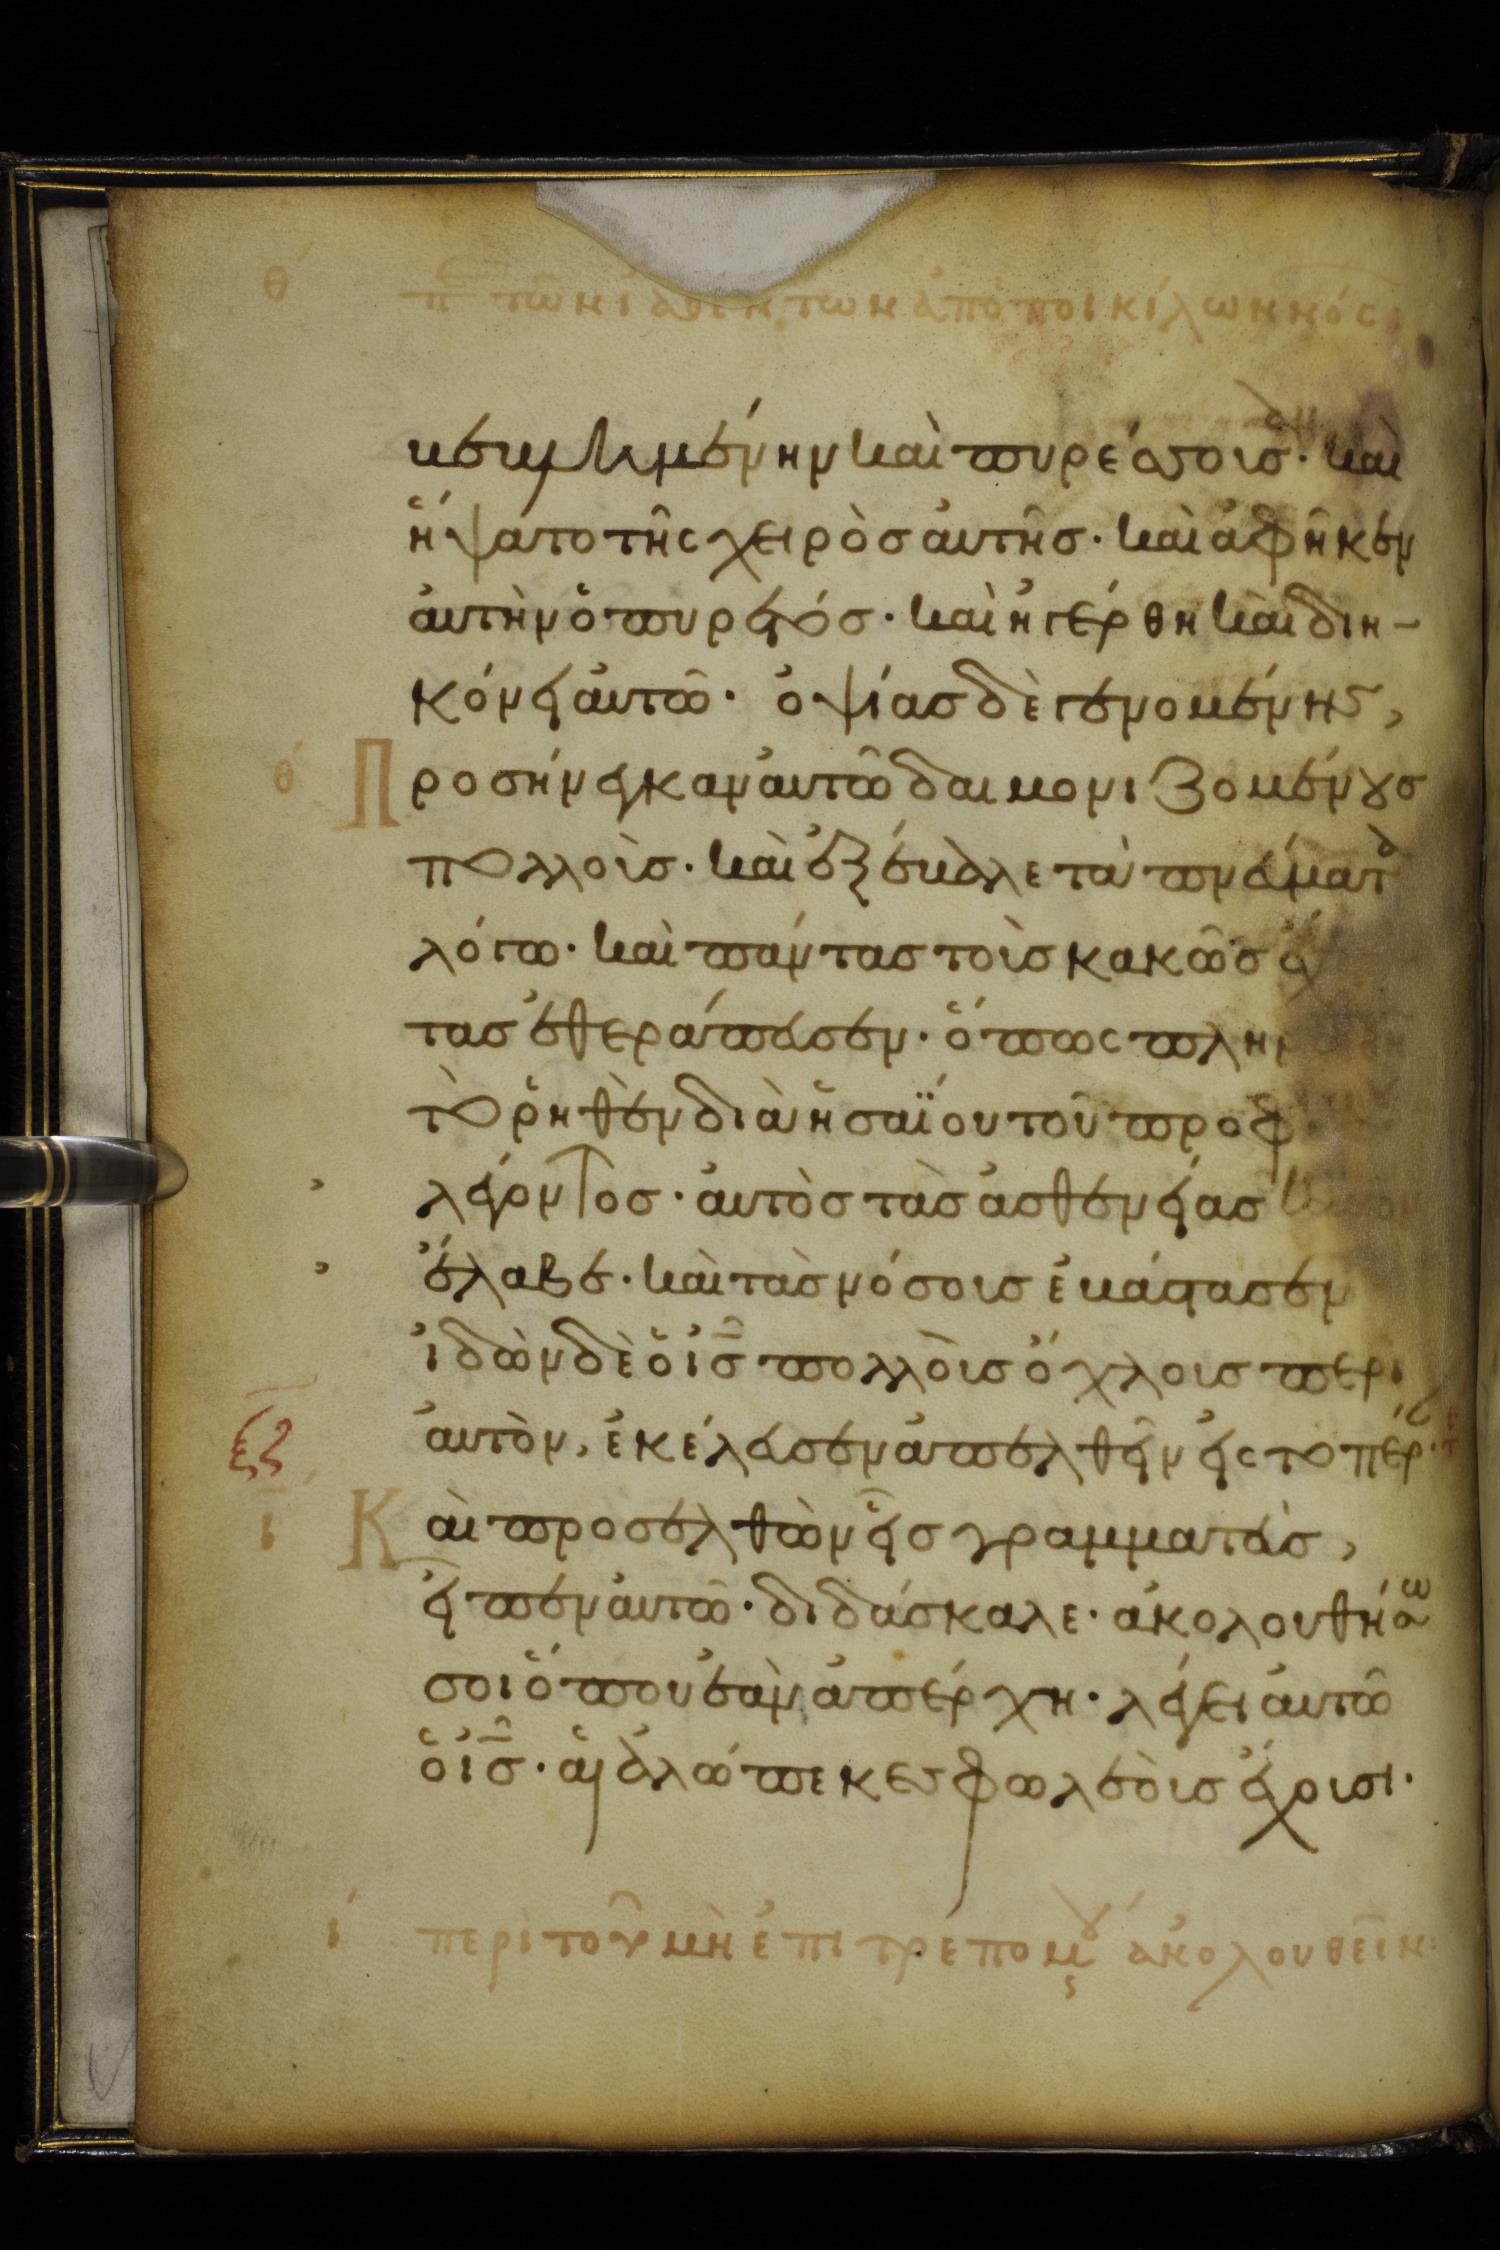 θ´ π τῶν ἰαθέντων ἀπὸ ποικίλων νόσ
βεβλημένην καὶ πυρέσσουσαν· καὶ
ἥψατο τῆς χειρὸς αὐτῆς· καὶ ἀφῆκεν
αὐτὴν ὁ πυρετός· καὶ ἠγέρθη καὶ διη-
κόνει αὐτῶ· ὀψίας δὲ γενομένης,
θ´ Προσήνεγκαν αὐτῶ δαιμονιζομένους
πολλοὺς· καὶ ἐξέβαλε τὰ πνεύματα
λόγω· καὶ πάντας τοὺς κακῶς ἔ
τας ἐθεράπευσεν· ὅπως πλη
τὸ ῥηθὲν διὰ ἡσαΐου τοῦ προφ
λέγοντος· αὐτὸς τὰς ἀσθενείας
ἔλαβε· καὶ τὰς νόσους ἐβάστασεν
ἰδὼν δὲ ὁ ἰς̅ πολλοὺς ὄχλους περὶ
αὐτὸν, ἐκέλευσεν ἀπελθεῖν εἰς τὸ πέρ
ξζ
ι Καὶ προσελθὼν εἷς γραμματεὺς,
εἶπεν αὐτῶ· διδάσκαλε· ἀκολουθήσω
σοι ὅπου ἐὰν ἀπέρχη· λέγει αὐτῶ
ὁ ἰς̅· αἱ ἀλώπεκες φωλεοὺς ἔχουσι·
ι´ περὶ τοῦ μὴ ἐπιτρεπομ´ου ἀκολουθεῖν